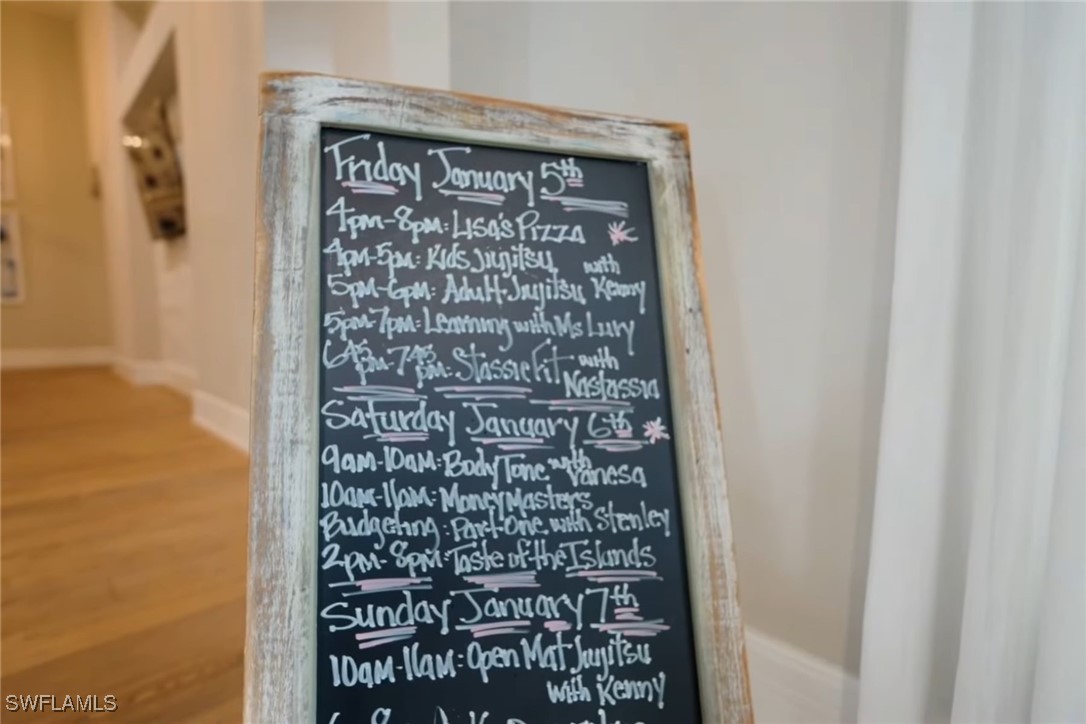 Friday January 5th
4pm-8pm: Lisa's Pizza
4pm-5pm: Kids Jiujitsu
5pm-6pm: Adult Jiujitsu with Kenny
5pm-7pm: Learning with Ms Lury
645pm-745pm: StassieFit with Nastassia
Saturday January 6th
9am-10am: Body Tone with Vanesa
10am-11am: Money Masters
Budgeting: Part One with Stenley
2pm-8pm: Taste of the Islands
Sunday January 7th
10am-11am: Open Mat Jiujitsu
with Kenny
SWFLAMLS